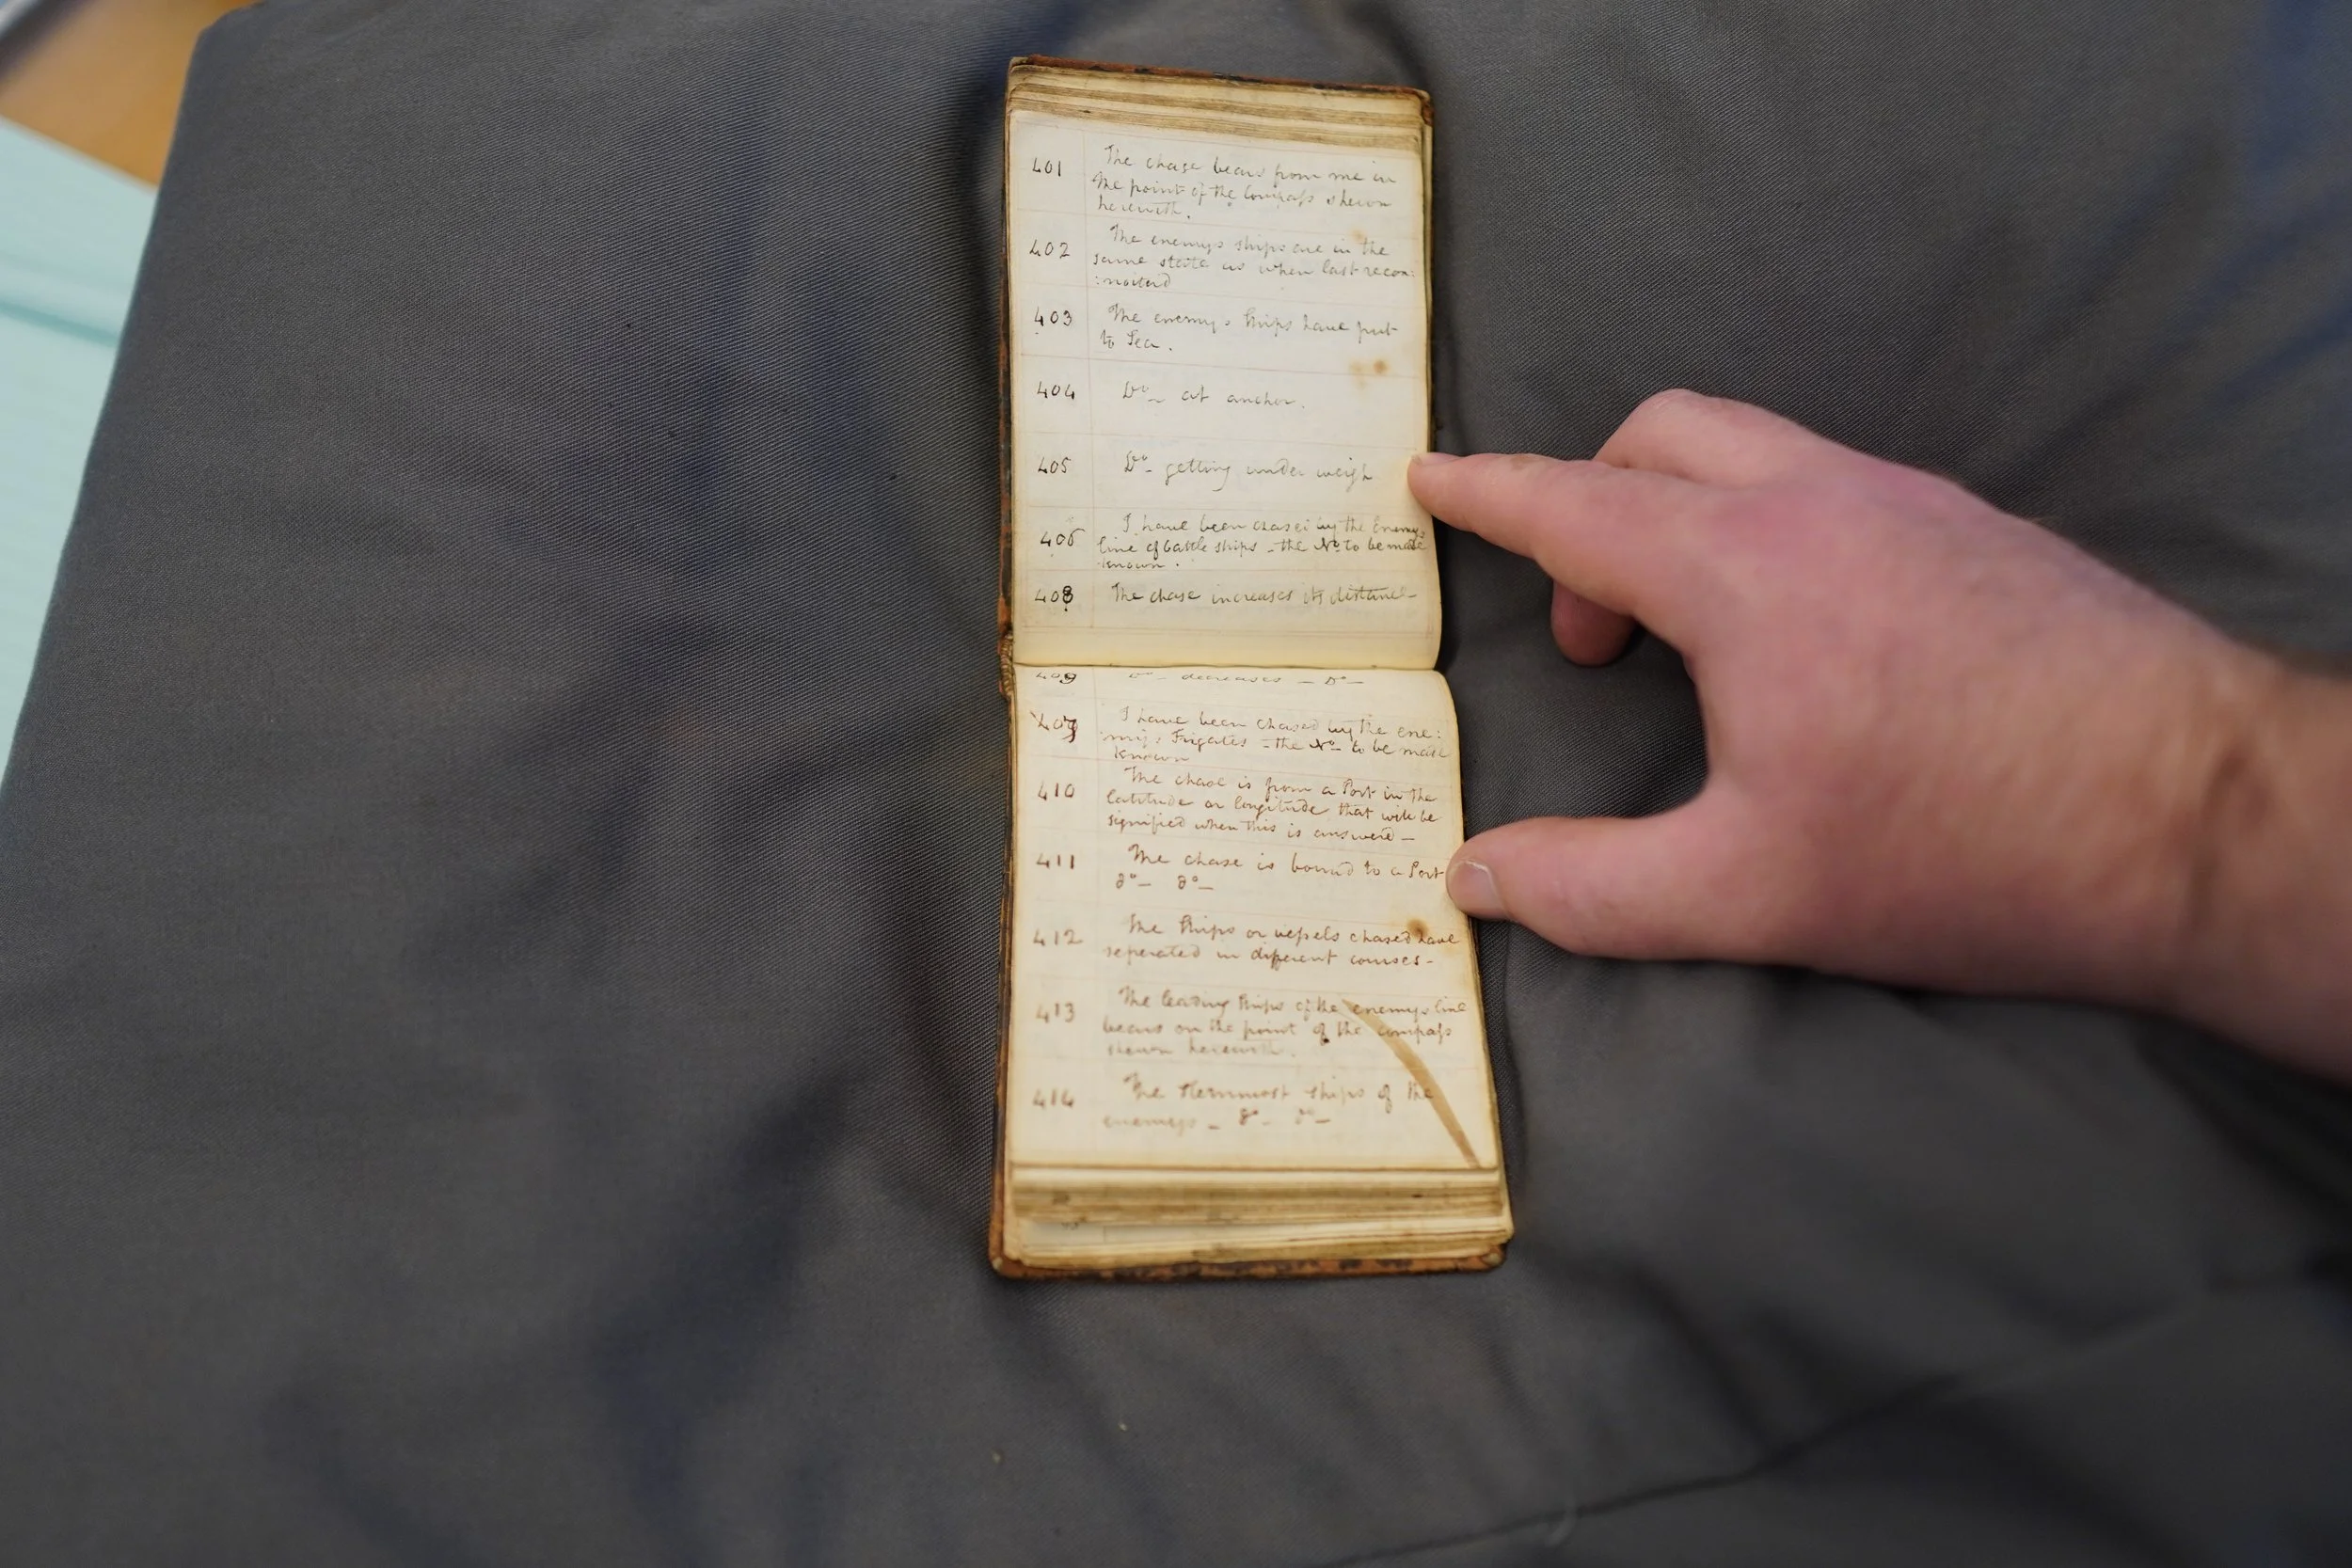 401 The chase bears from me in
the point of the Compass shewn
herewith.
402 The enemys ships are in the
same state as when last recon:
:noiterd
403 The enemys Ships have put
to Sea.
404 Do_ at anchor.
405 Do_ getting under weigh
406 I have been chased by the Enemys
line of battle ships - the No to be made
known.
408 The chase increases its distance_
409 Do_ decreases _ Do_
407 I have been chased by the ene:
:mys Frigates - the No_ to be made
known
410 The chase is from a Port in the
latitude or longitude that will be
signified when this is answerd _
411 The chase is bound to a Port
do_ do_
412 The Ships or vessels chased have
seperated in different courses-
413 The leading Ships of the enemys line
bears on the point of the compass
shewn herewith.
414 The sternmost ships of the
enemys _ do_ do_